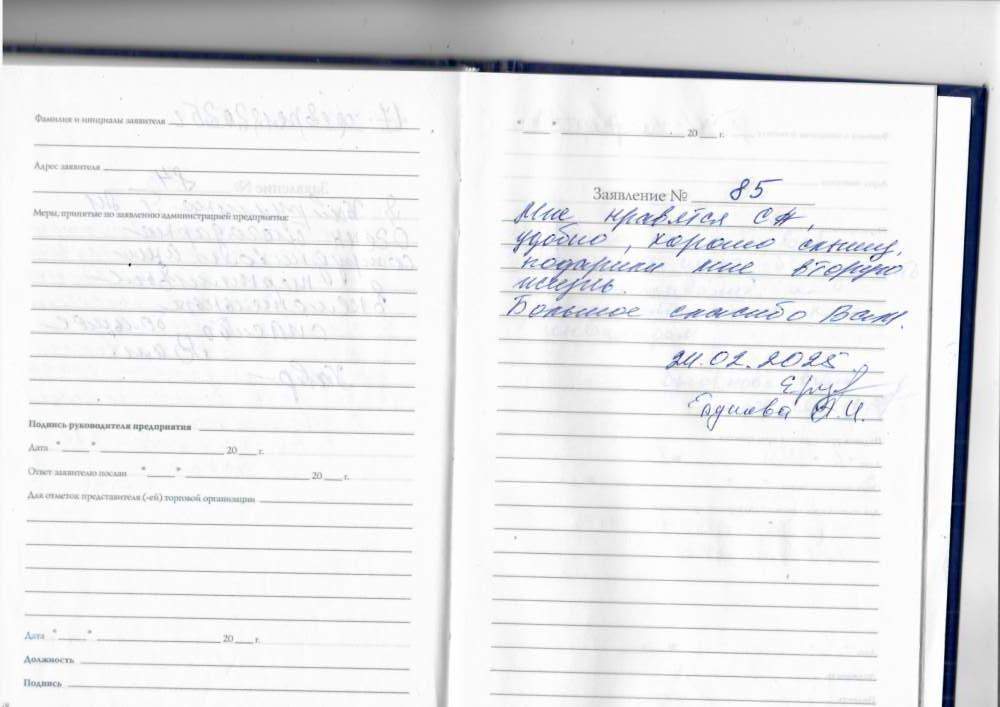 Фамилия и инициалы заявителя
Адрес заявителя
Меры, принятые по заявлению администрацией предприятия:
Подпись руководителя предприятия
Дата " " 20 г.
Ответ заявителю послан " " 20 г.
Для отметок представителя (-ей) торговой организации
Дата " " 20 г.
Должность
Подпись
" " 20 г.
Заявление № 85
Мне нравятся СА,
удобно, хорошо слышу,
подарили мне вторую
жизнь.
Большое спасибо Вам.
24.02.2025.